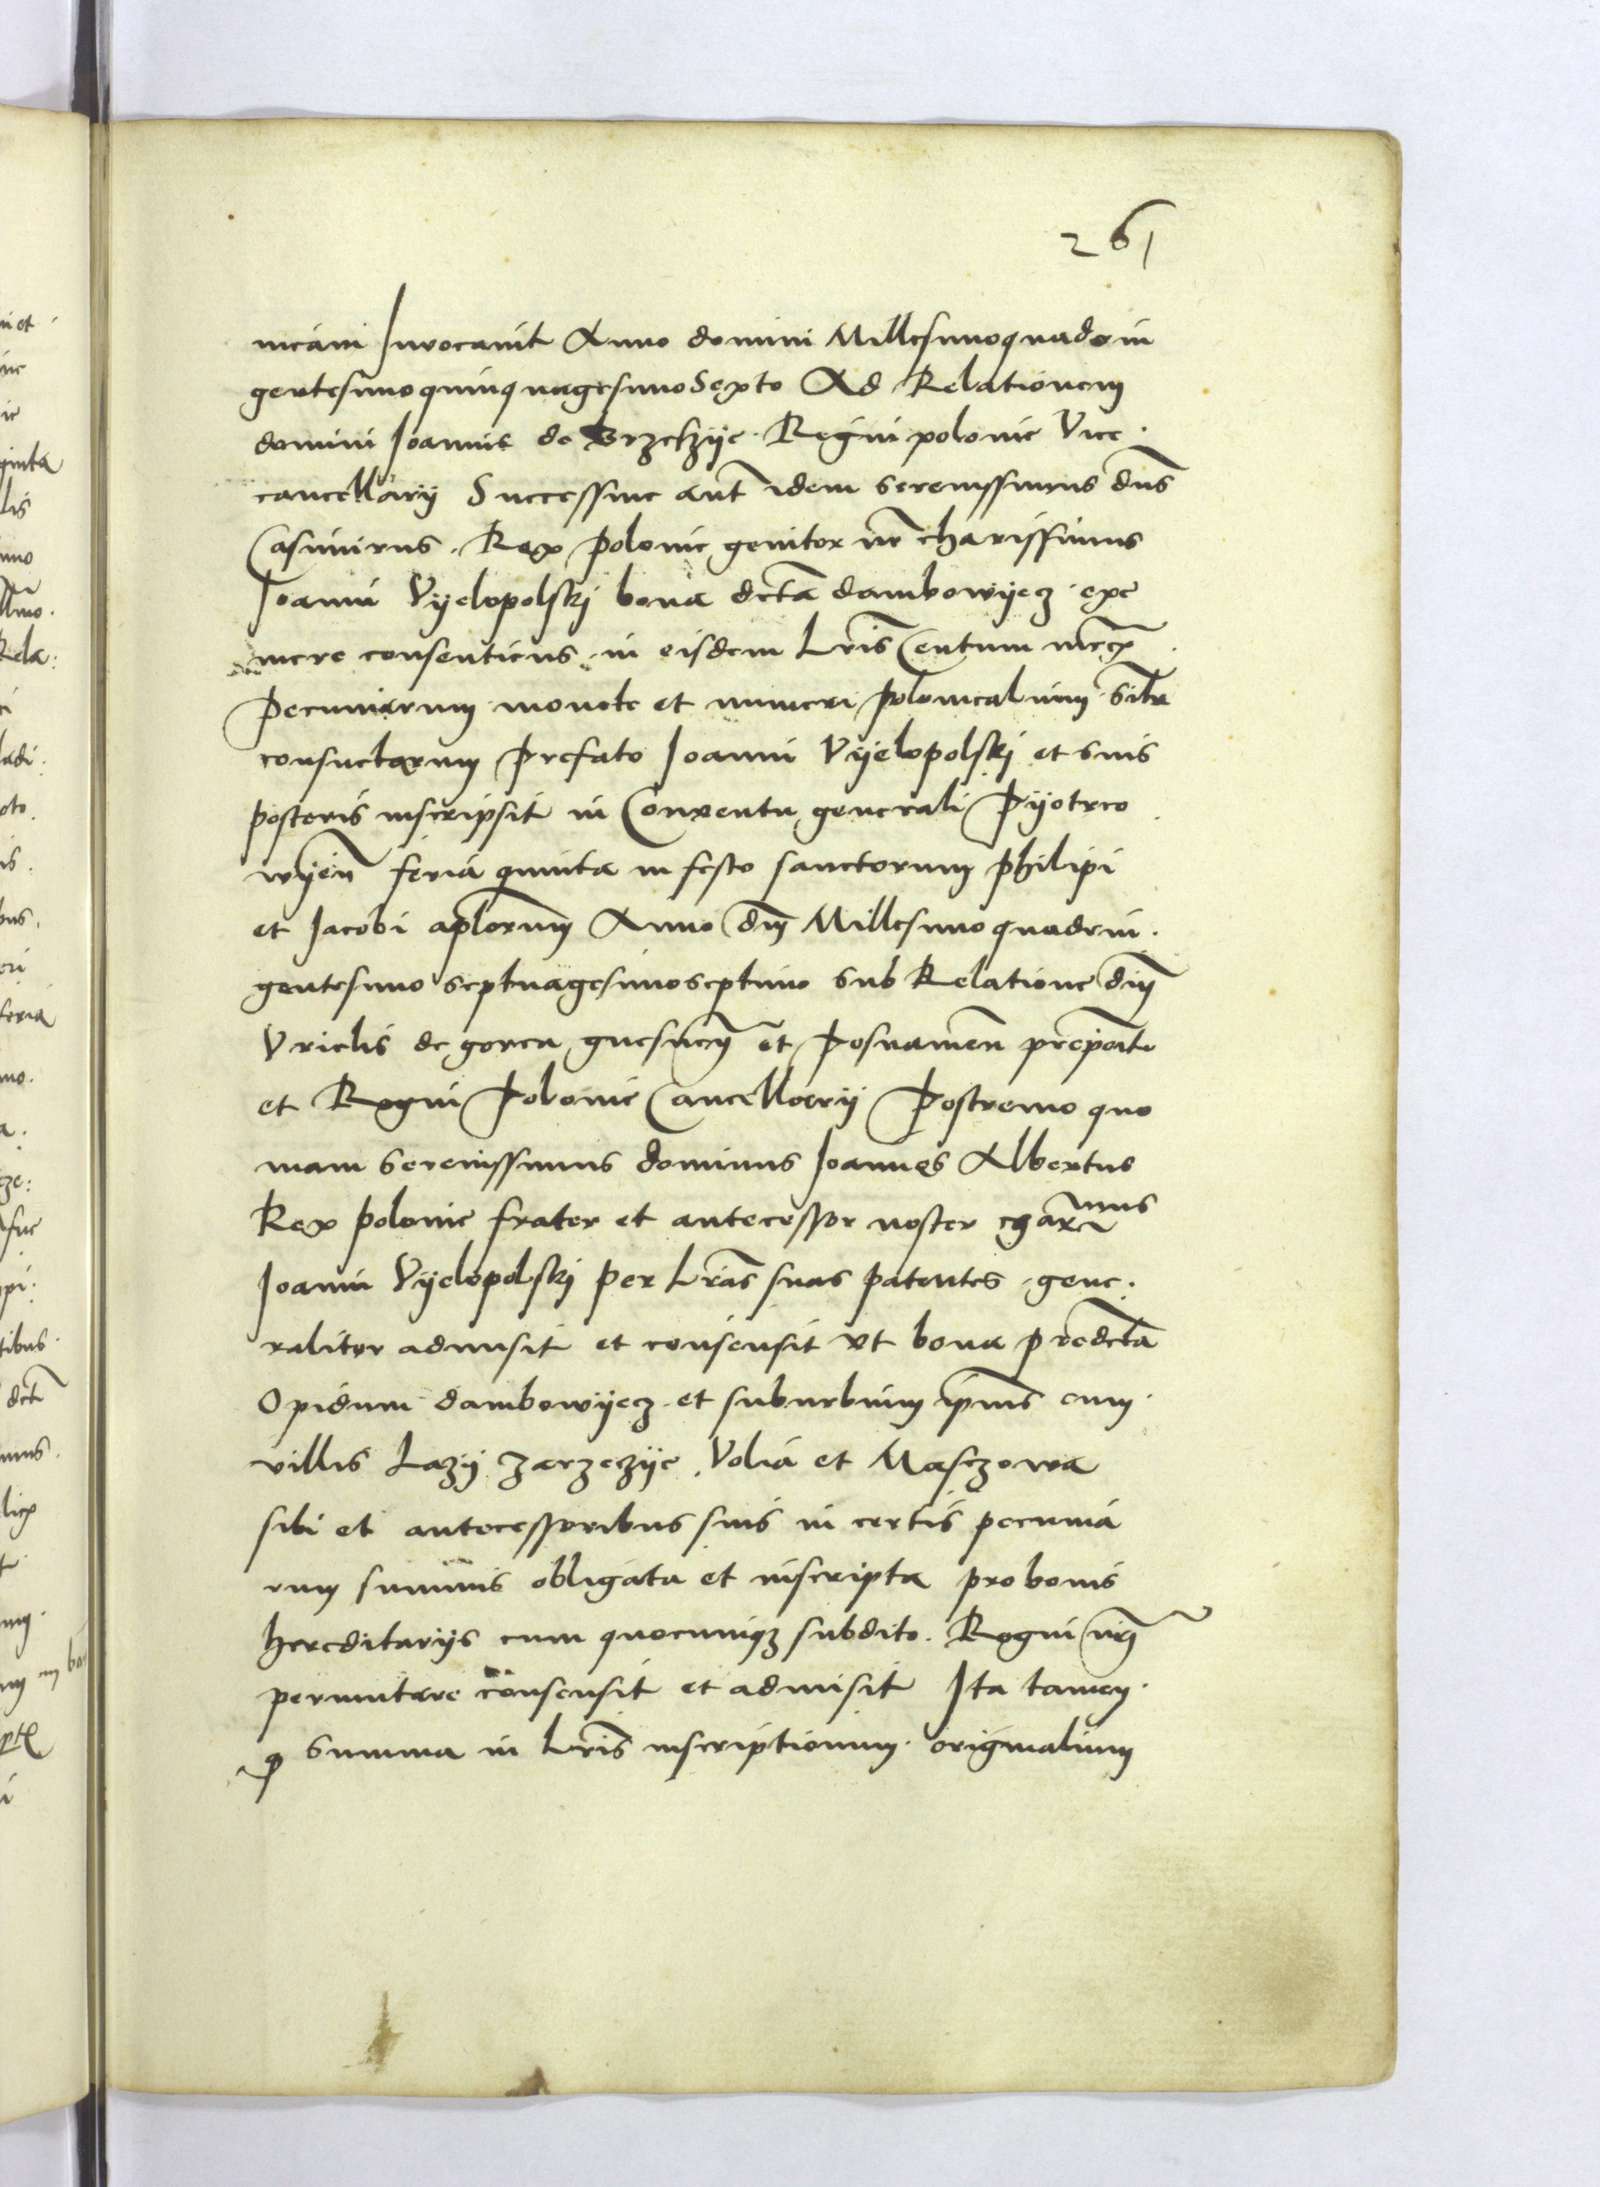 261
nicam Invocavit Anno domini Millesimoquadrin
gentesimoquinquagesimoSexto Ad Relationem
domini Joannis de Brzeszye Regni polonie Vice
cancellarij Successive aut idem Serenissimus dns
Casimirus Rex Polonie genitor nr charissimus
Joanni Vyelopolskj bona dcta dambowyecz exe
mere consentiens in eisdem Lris Centum mrcz
Pecuniarum monete et numeri polonicalium Sibi
consuetarum Prefato Joanni Vyelopolskj et suis
posteris inscripsit in Conventu generali Pyotrco
wyen feria quinta in festo sanctorum philipi
et Jacobi aplorum Anno dni Millesimo quadrin
gentesimo Septuagesimoseptimo sub Relatione dni
Vrielis de gorca gnesnen et Posnamen prepoti
et Regni Polonie Cancellarij Postremo quo
niam Serenissimus dominus Joannes Albertus
Rex polonie frater et antecessor noster charimus
Joanni Vyelopolskj per Lras suas patentes gene
raliter admisit et consensit vt bona predcta
Opidum dambowyecz et suburbium ipius cum
villis Lazy Zarzeczye Volia et Masczowa
sibi et antecessoribus suis in certis pecunia
rum summis obligata et inscripta pro bonis
hereditarijs cum quocunqz subdito Regni nri
permutare consensit et admisit Ita tamen
q summa in Lris inscriptionum originalium